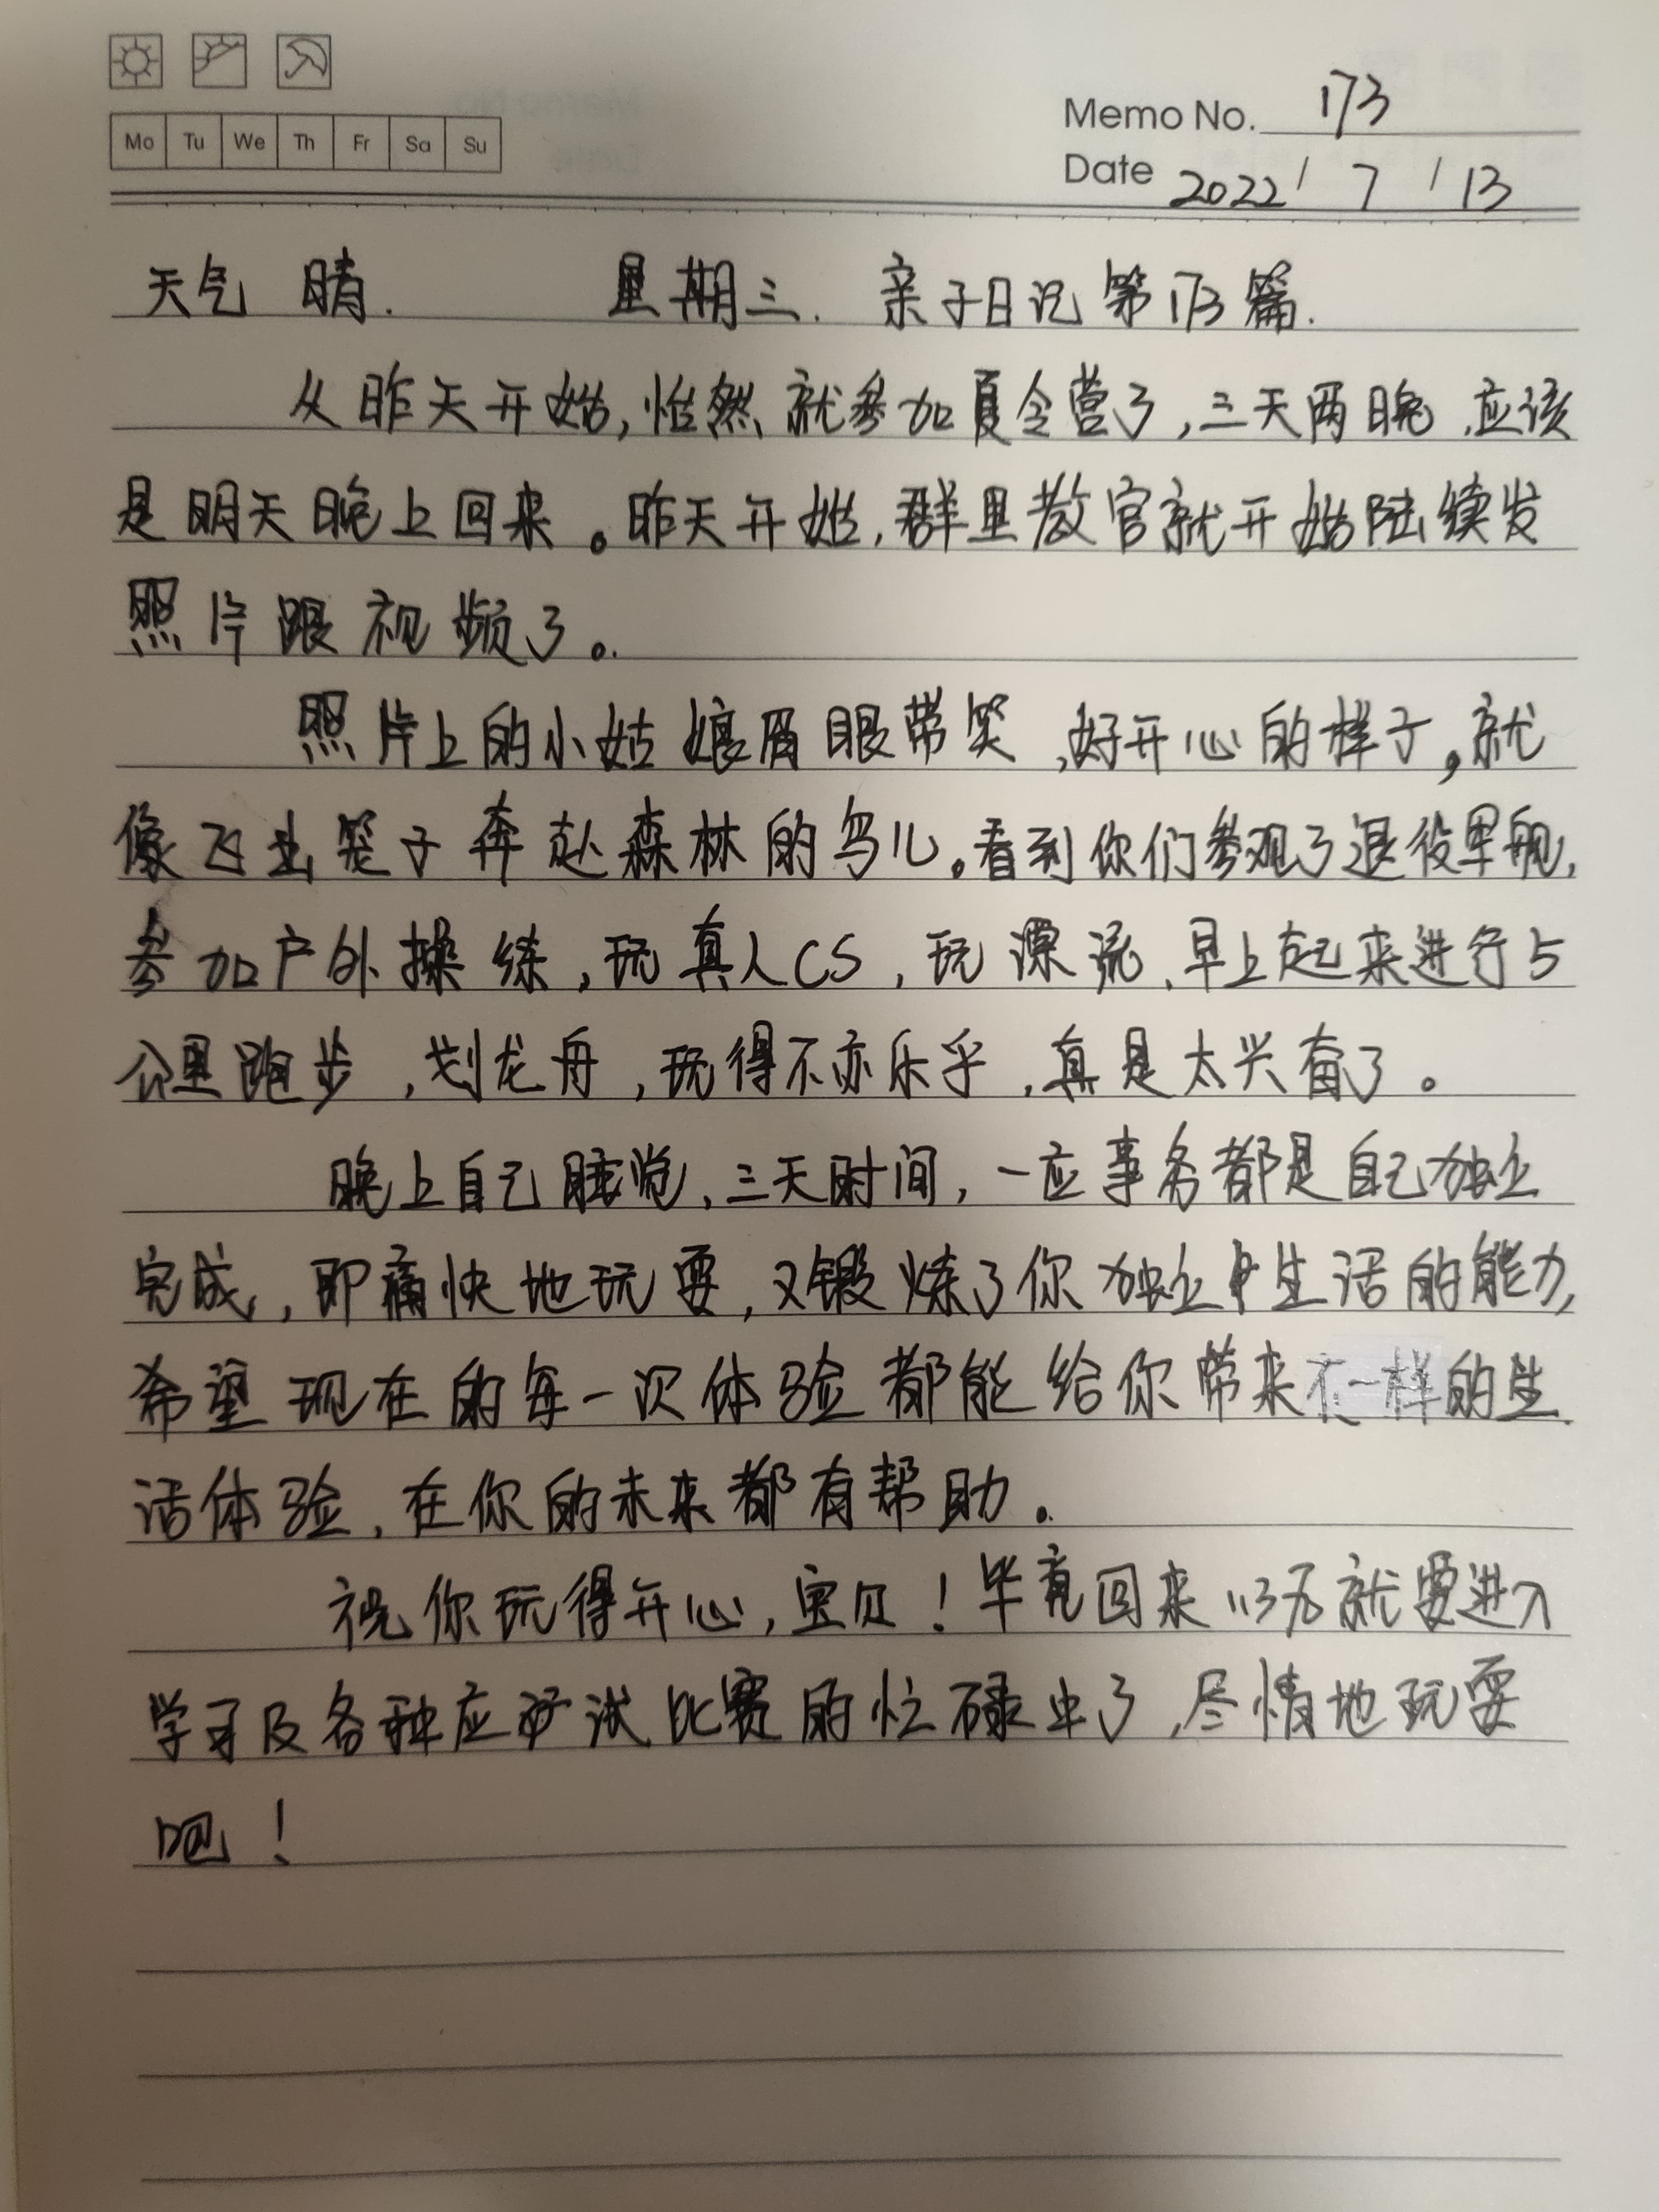 Mo Tu We Th Fr Sa Su
Memo No. 173
Date 2022 / 7 / 13
天气 晴. 星期三. 亲子日记第173篇.
从昨天开始,怡然就参加夏令营了,三天两晚,应该
是明天晚上回来。昨天开始,群里教官就开始陆续发
照片跟视频了。
照片上的小姑娘眉眼带笑,好开心的样子,就
像飞出笼子奔赴森林的鸟儿。看到你们参观了退役军舰,
参加户外操练,玩真人CS,玩漂流,早上起来进行5
公里跑步,划龙舟,玩得不亦乐乎,真是太兴奋了。
晚上自己睡觉,三天时间,一应事务都是自己独立
完成,即痛快地玩耍,又锻炼了你独立生活的能力,
希望现在的每一次体验都能给你带来不一样的生
活体验,在你的未来都有帮助。
祝你玩得开心,宝贝!毕竟回来以后就要进入
学习及各种应试比赛的忙碌中了,尽情地玩耍
吧!